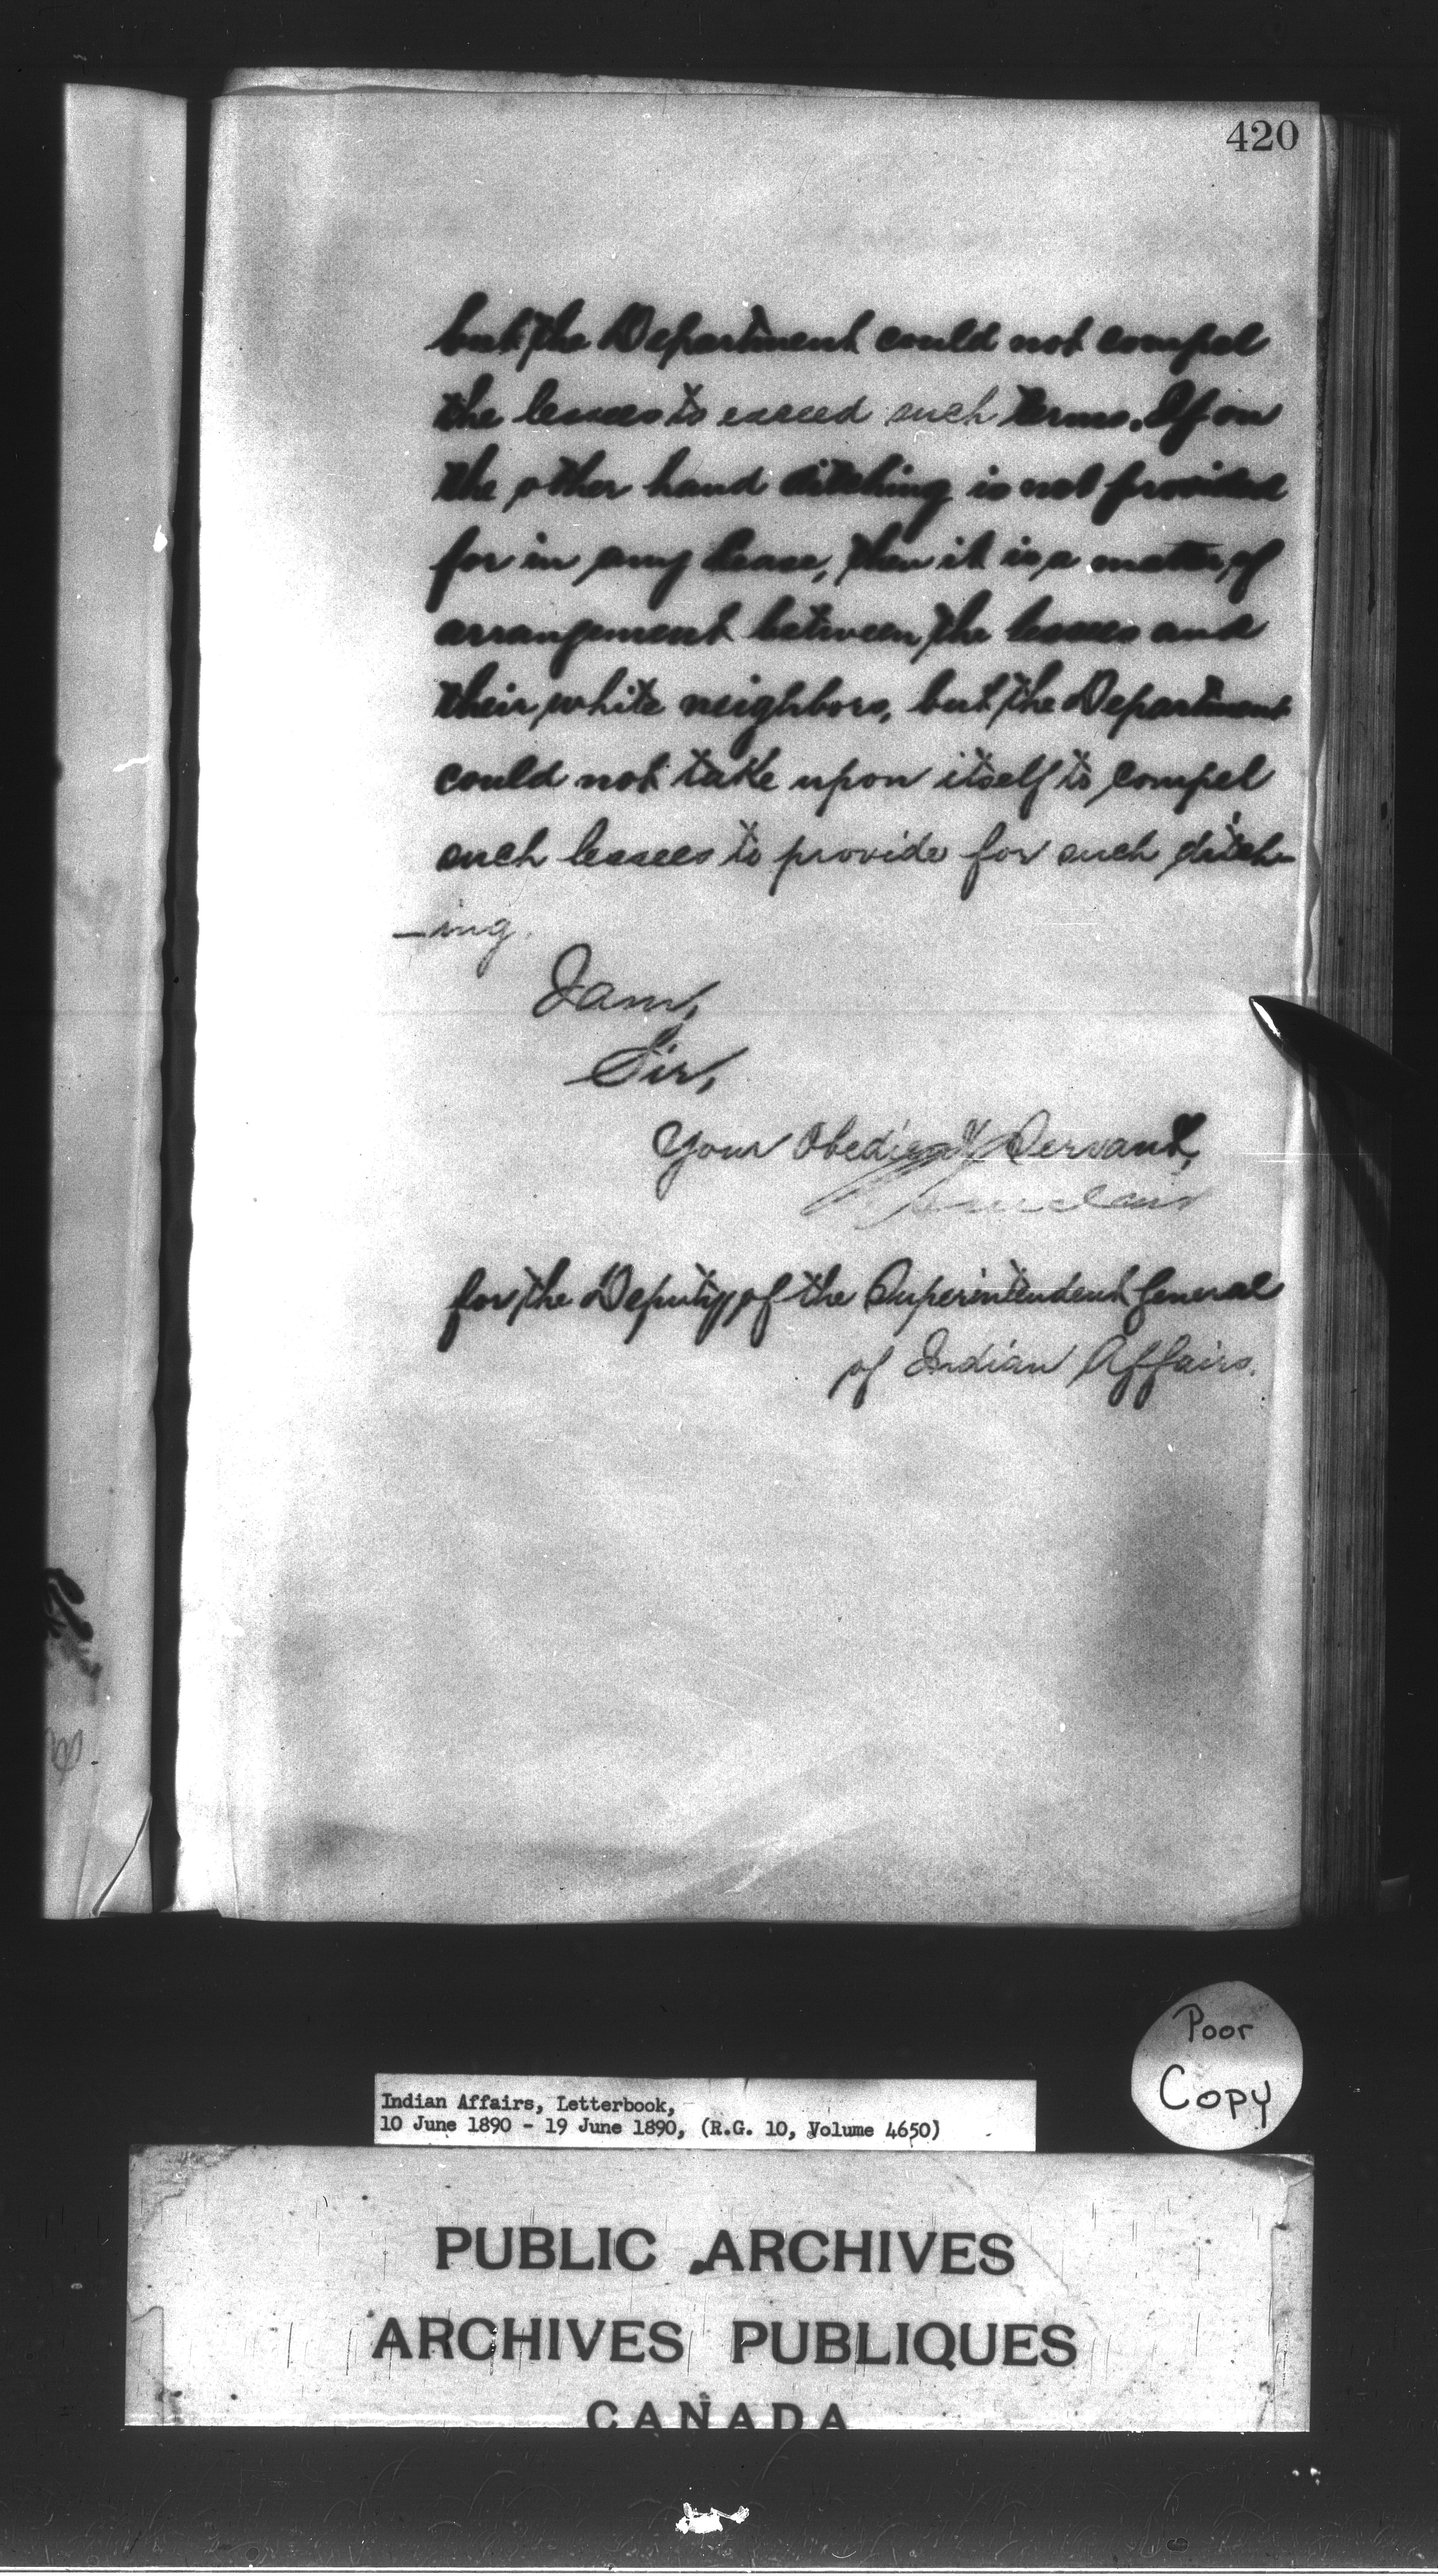 420
but the Department could not compel
the lessees to exceed such terms. If on
the other hand ditching is not provided
for in any lease, then it is a matter of
arrangement between the lessees and
their white neighbors, but the Department
could not take upon itself to compel
such lessees to provide for such ditch-
-ing.
I am,
Sir,
Your Obedient Servant,
for the Deputy of the Superintendent General
of Indian Affairs.
Poor
Copy
Indian Affairs, Letterbook,
10 June 1890 - 19 June 1890, (R.G. 10, Volume 4650)
PUBLIC ARCHIVES
ARCHIVES PUBLIQUES
CANADA